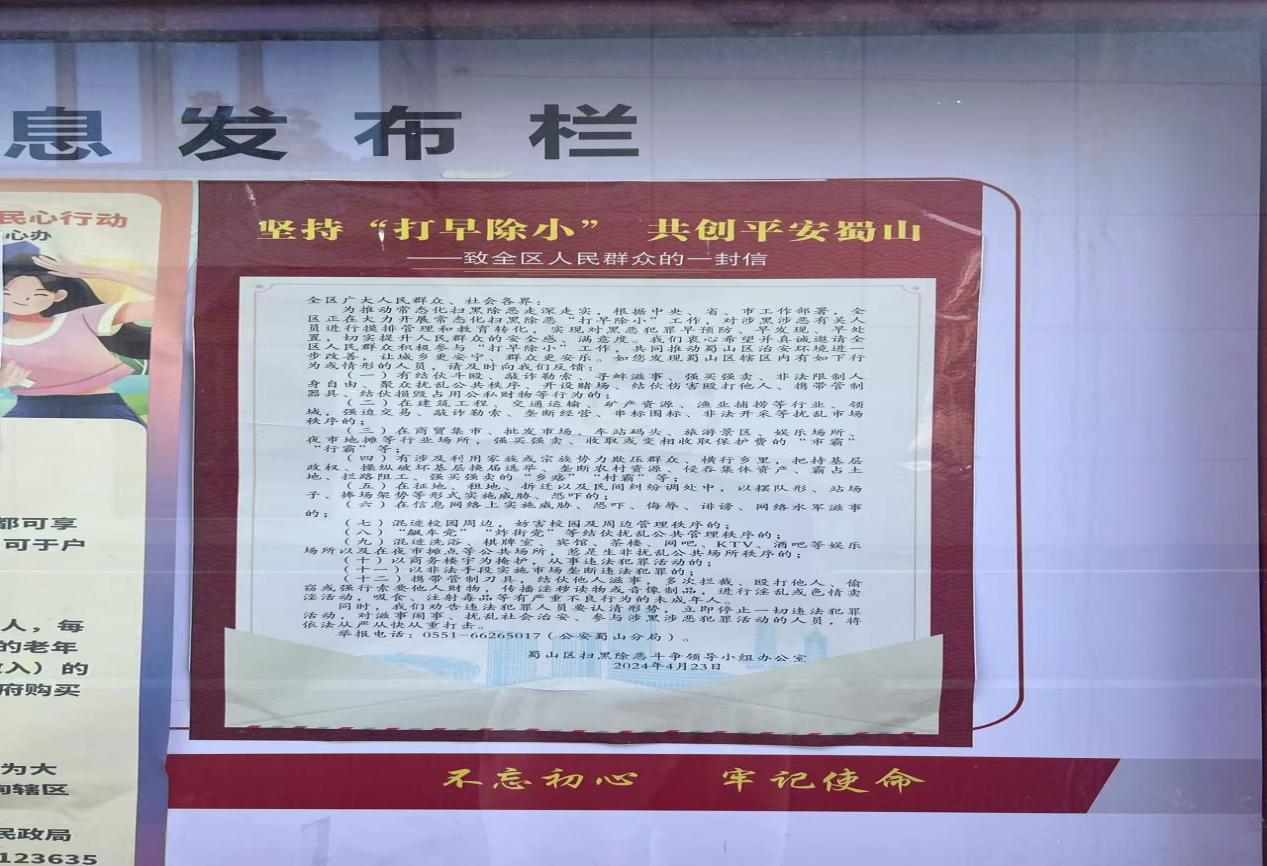 息发布栏
民心行动
心办
都可享
可于户
人，每
的老年
入）的
府购买
为大
辖区
民政局
123635
坚持“打早除小” 共创平安蜀山
——致全区人民群众的一封信
全区广大人民群众、社会各界：
为推动常态化扫黑除恶走深走实，根据中央、省、市工作部署，全
区正在大力开展常态化扫黑除恶“打早除小”工作，对涉黑涉恶有关人
员进行摸排管理和教育转化，实现对黑恶犯罪早预防、早发现、早处
置，切实提升人民群众的安全感、满意度。我们衷心希望并真诚邀请全
区人民群众积极参与“打早除小”工作，共同推动蜀山区治安环境进一
步改善，让城乡更安宁、群众更安乐。如您发现蜀山区辖区内有如下行
为或情形的人员，请及时向我们反馈：
（一）有结伙斗殴、敲诈勒索、寻衅滋事、强买强卖、非法限制人
身自由、聚众扰乱公共秩序、开设赌场、结伙伤害殴打他人、携带管制
器具、结伙损毁占用公私财物等行为的；
（二）在建筑工程、交通运输、矿产资源、渔业捕捞等行业、领
域，强迫交易、敲诈勒索、垄断经营、串标围标、非法开采等扰乱市场
秩序的；
（三）在商贸集市、批发市场、车站码头、旅游景区、娱乐场所、
夜市地摊等行业场所，强买强卖、收取或变相收取保护费的“市霸”
“行霸”等；
（四）有涉及利用家族或宗族势力欺压群众、横行乡里，把持基层
政权、操纵破坏基层换届选举、垄断农村资源、侵吞集体资产、霸占土
地、拦路阻工、强买强卖的“乡痞”“村霸”等；
（五）在征地、租地、拆迁以及民间纠纷调处中，以摆队形、站场
子、捧场架势等形式实施威胁、恐吓的；
（六）在信息网络上实施威胁、恐吓、侮辱、诽谤、网络水军滋事
的；
（七）混迹校园周边，妨害校园及周边管理秩序的；
（八）“飙车党”“炸街党”等结伙扰乱公共管理秩序的；
（九）混迹洗浴、棋牌室、宾馆、茶楼、网吧、KTV、酒吧等娱乐
场所以及在夜市摊点等公共场所，惹是生非扰乱公共场所秩序的；
（十）以商务楼宇为掩护，从事违法犯罪活动的；
（十一）以非法手段实施市场垄断违法犯罪的；
（十二）携带管制刀具，结伙他人滋事，多次拦截、殴打他人、偷
窃或强行索要他人财物，传播淫秽读物或音像制品，进行淫乱或色情卖
淫活动，吸食、注射毒品等有严重不良行为的未成年人。
同时，我们劝告违法犯罪人员要认清形势，立即停止一切违法犯罪
活动，对滋事闹事、扰乱社会治安、参与涉黑涉恶犯罪活动的人员，将
依法从严从快从重打击。
举报电话：0551-66265017（公安蜀山分局）。
蜀山区扫黑除恶斗争领导小组办公室
2024年4月23日
不忘初心 牢记使命